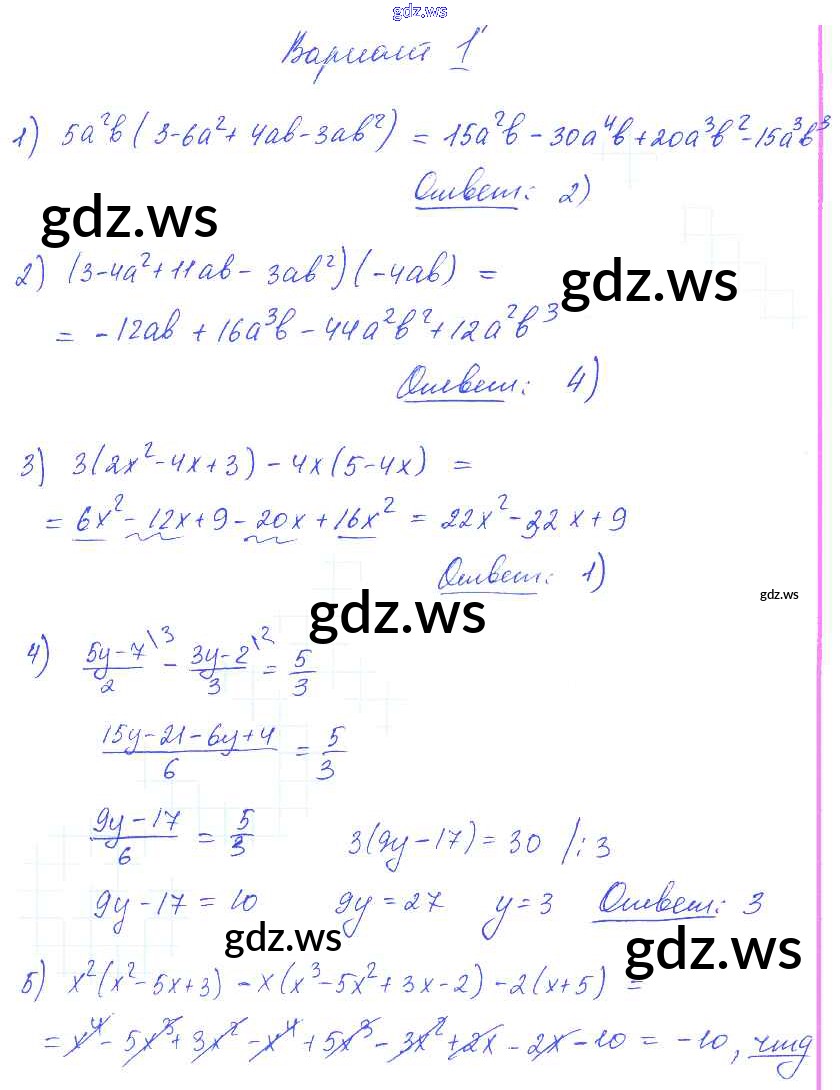 gdz.ws
Вариант 1
1) 5a²b(3-6a²+4ab-3ab²) = 15a²b-30a⁴b+20a³b²-15a³b³
Ответ: 2)
gdz.ws
2) (3-4a²+11ab-3ab²)(-4ab) =
gdz.ws
= -12ab+16a³b-44a²b²+12a²b³
Ответ: 4)
3) 3(2x²-4x+3)-4x(5-4x) =
= 6x²-12x+9-20x+16x² = 22x²-32x+9
Ответ: 1)
gdz.ws
gdz.ws
4) (5y-7)/2 \3 - (3y-2)/3 \2 = 5/3
(15y-21-6y+4)/6 = 5/3
(9y-17)/6 = 5/3 3(9y-17)=30 /:3
9y-17=10 9y=27 y=3 Ответ: 3
gdz.ws
gdz.ws
5) x²(x²-5x+3)-x(x³-5x²+3x-2)-2(x+5) =
= x⁴-5x³+3x²-x⁴+5x³-3x²+2x-2x-10 = -10, чтд